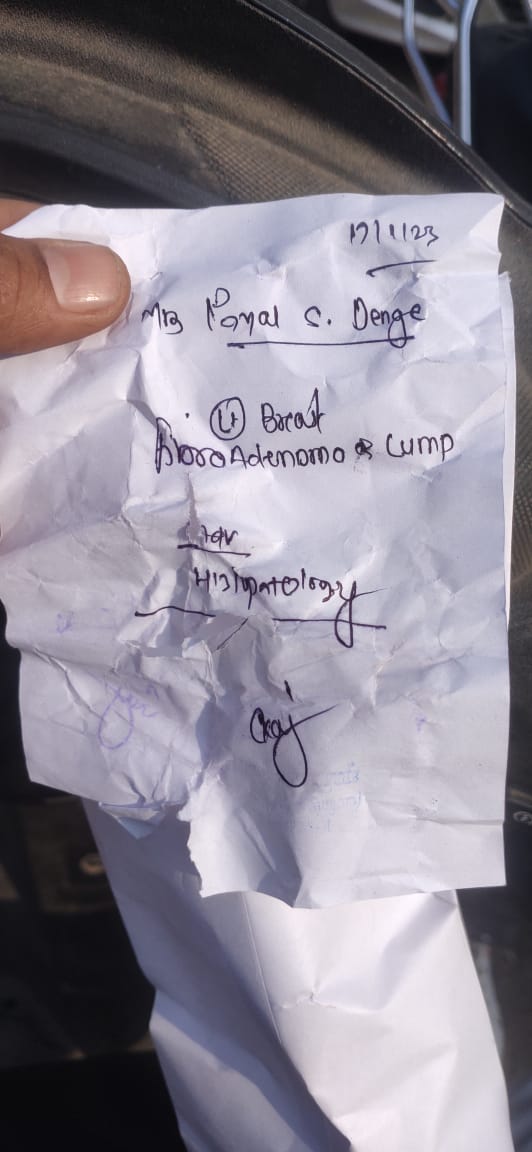 17/1/23
Mrs Payal S. Denge
Lt Breast
FibroAdenomo & Lump
for
Histopatology